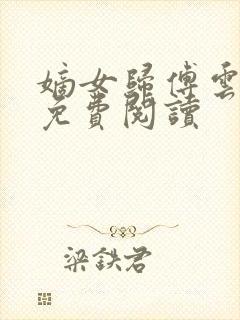 嫡女歸傅雲
免費閱讀
梁鉄君